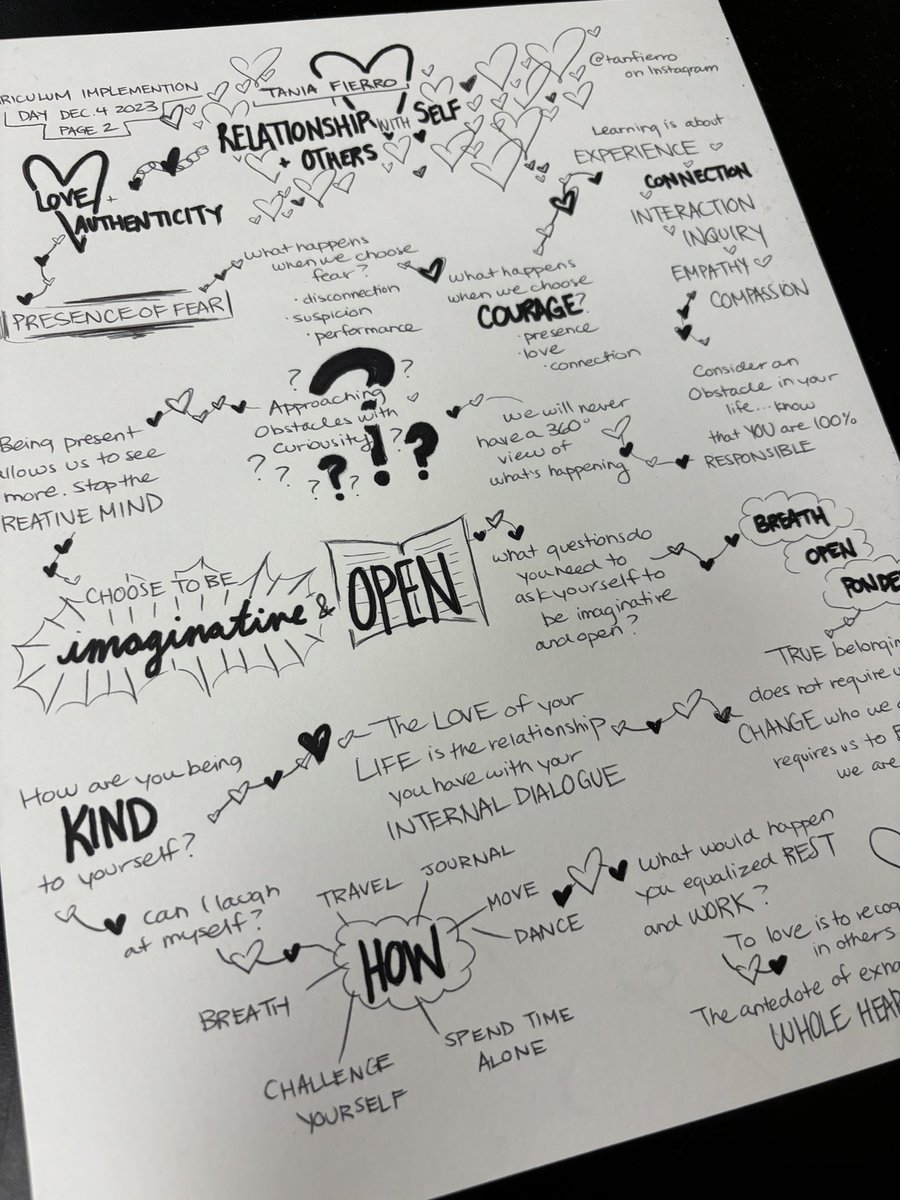 RICULUM IMPLEMENTION
DAY DEC. 4 2023
PAGE 2
TANIA FIERRO
RELATIONSHIP WITH SELF
+ OTHERS
@tanfierro
on Instagram
LOVE +
AUTHENTICITY
PRESENCE OF FEAR
what happens
when we choose
fear?
• disconnection
• suspicion
• performance
what happens
when we choose
COURAGE?
• presence
• love
• connection
Learning is about
EXPERIENCE
CONNECTION
INTERACTION
INQUIRY
EMPATHY
COMPASSION
Consider an
Obstacle in your
life... know
that YOU are 100%
RESPONSIBLE
we will never
have a 360°
view of
what's happening
Approaching
Obstacles with
Curiousity
? ? ! ?
Being present
allows us to see
more. Stop the
REATIVE MIND
CHOOSE TO BE
imaginative & OPEN
what questions do
you need to
ask yourself to
be imaginative
and open?
BREATH
OPEN
PONDE
TRUE belonging
does not require
CHANGE who we
requires us to
we are
The LOVE of your
LIFE is the relationship
you have with your
INTERNAL DIALOGUE
How are you being
KIND
to yourself?
can I laugh
at myself?
HOW
TRAVEL
JOURNAL
MOVE
DANCE
SPEND TIME
ALONE
CHALLENGE
YOURSELF
BREATH
What would happen
you equalized REST
and WORK?
To love is to recog
in others
The antedote of exha
WHOLE HEAR